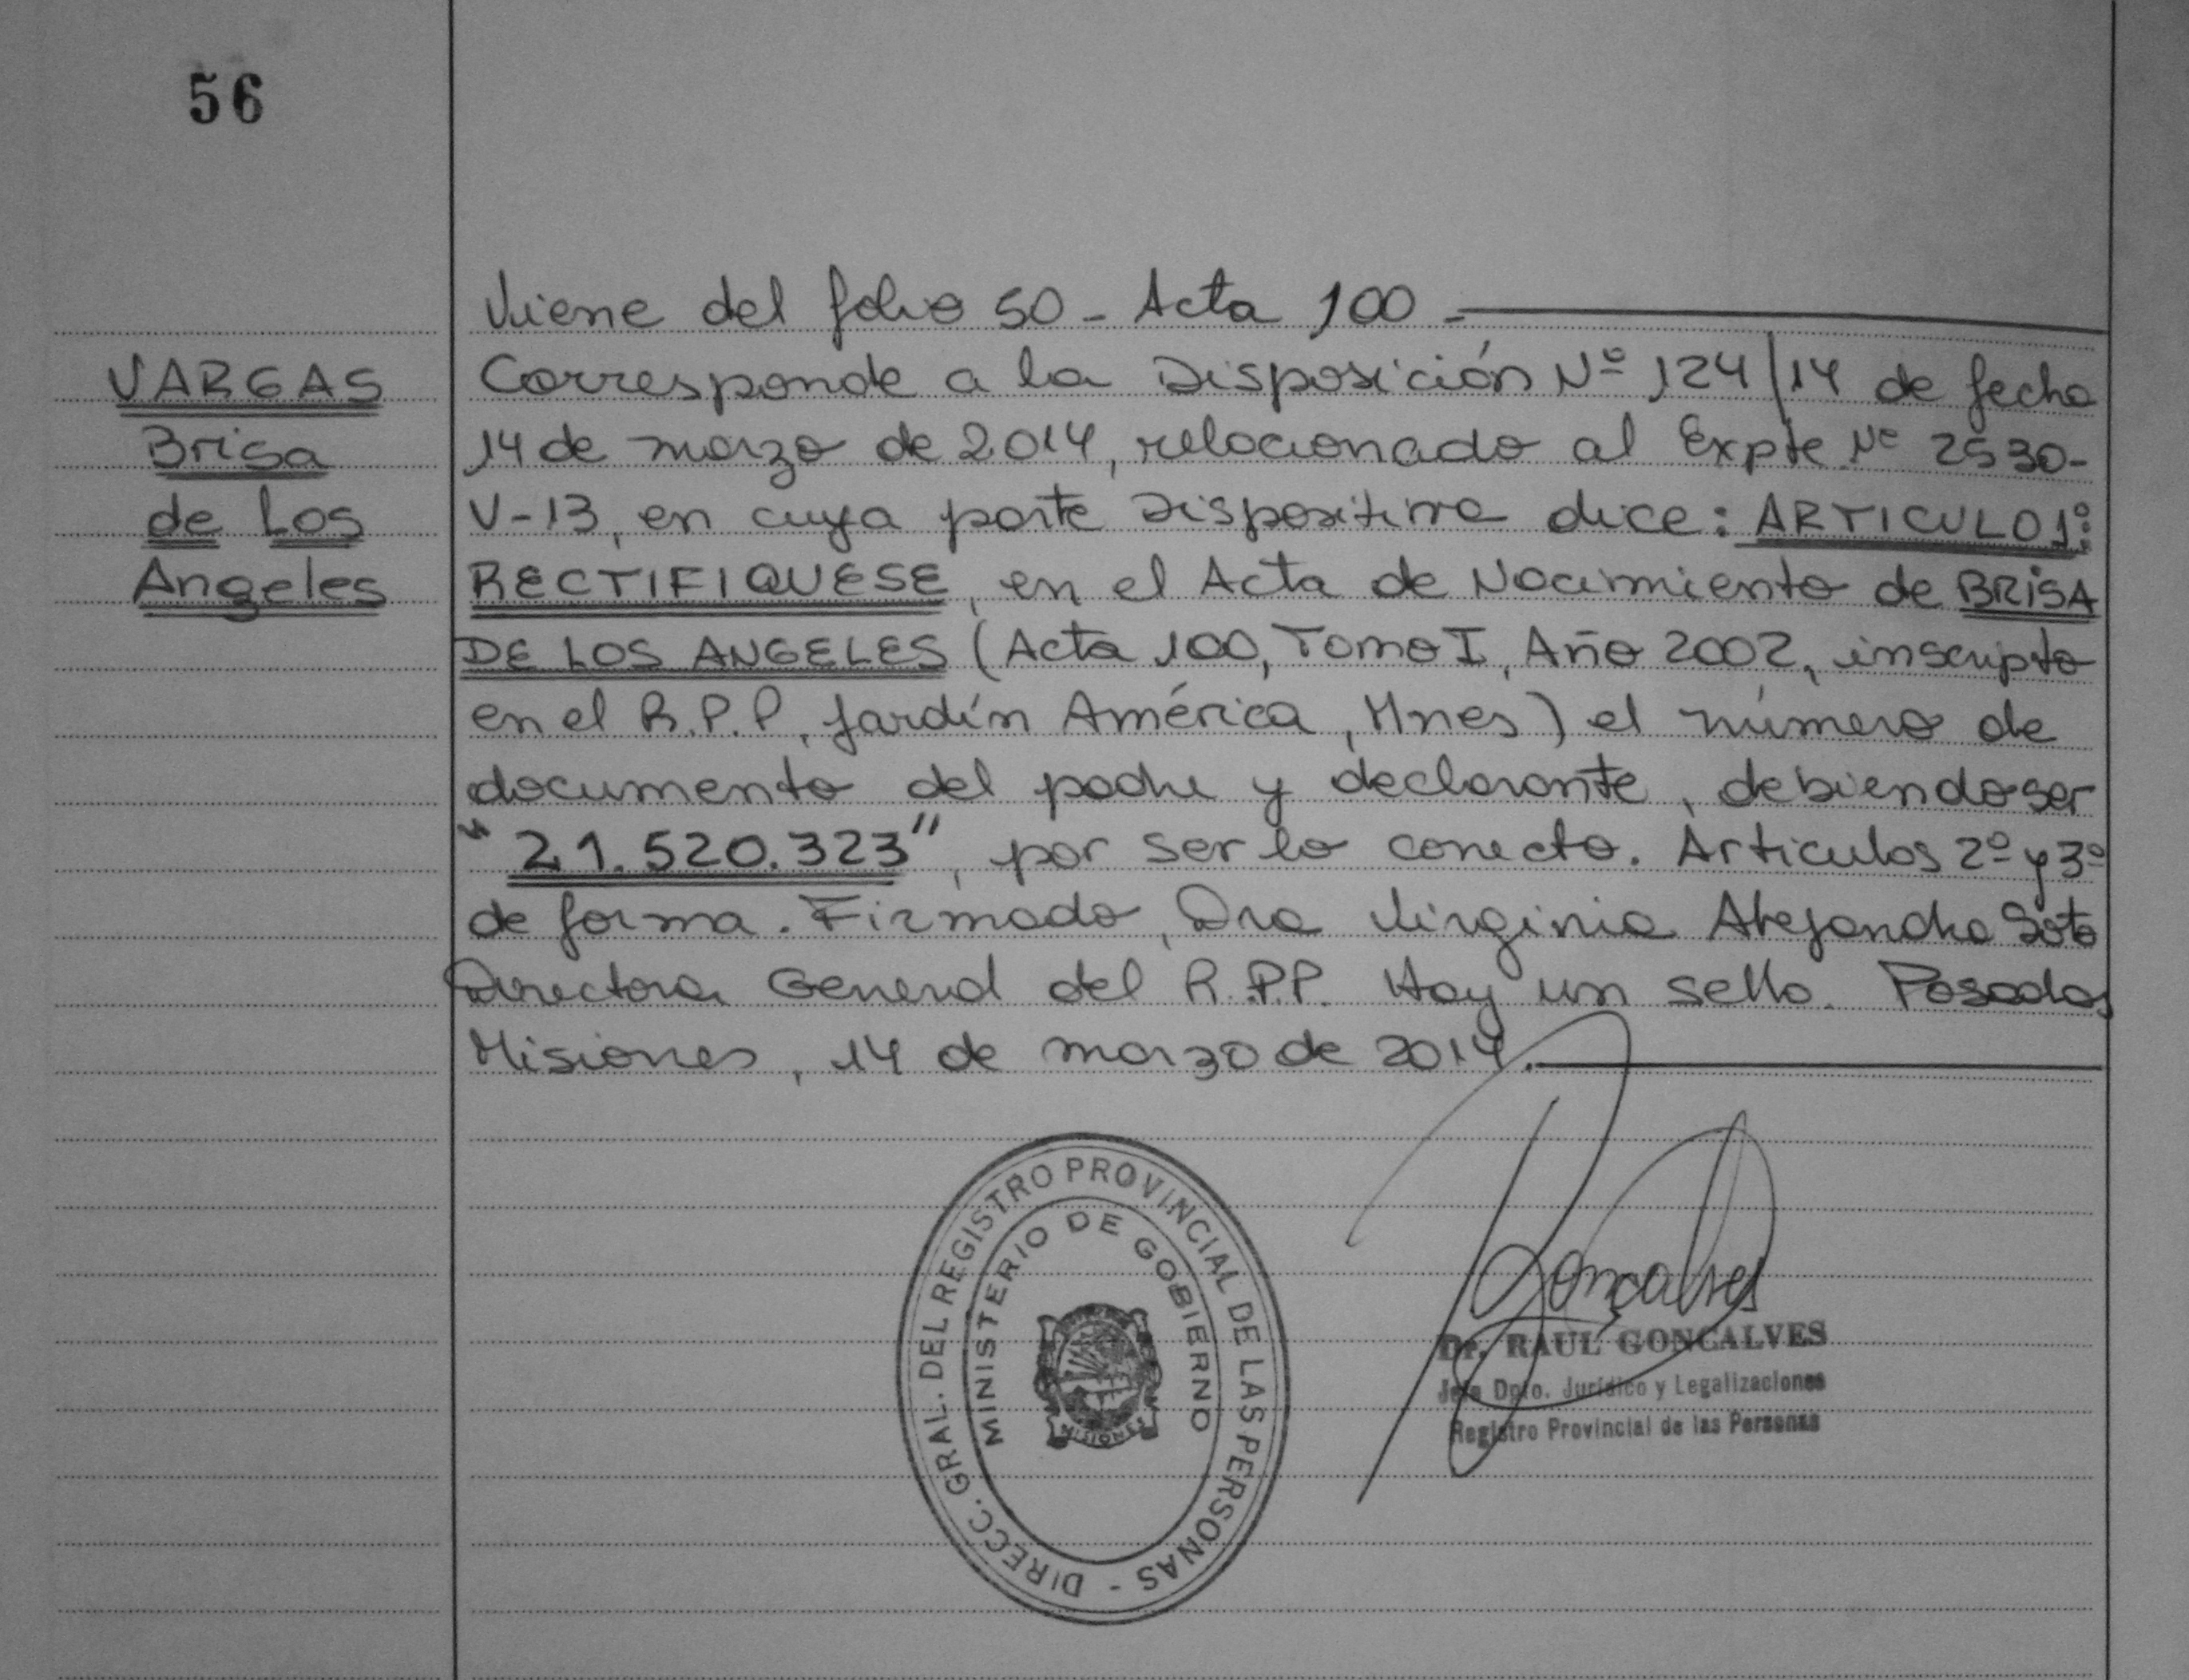 56
VARGAS
Brisa
de Los
Angeles
Viene del folio 50 - Acta 100 -
Corresponde a la Disposición Nº 124/14 de fecha
14 de marzo de 2014, relacionado al Expte Nº 2530-
V-13, en cuya parte Dispositiva dice: ARTICULO 1º:
RECTIFIQUESE, en el Acta de Nacimiento de BRISA
DE LOS ANGELES (Acta 100, Tomo I, Año 2002, inscripto
en el R.P.P, Jardín América, Mnes) el número de
documento del padre y declarante, debiendo ser
"21.520.323", por ser lo correcto. Articulos 2º y 3º
de forma. Firmado, Dra Virginia Alejandra Soto
Directora General del R.P.P. Hay un sello. Posadas
Misiones, 14 de marzo de 2014.
DIRECC. GRAL. DEL REGISTRO PROVINCIAL DE LAS PERSONAS -
MINISTERIO DE GOBIERNO
MISIONES
Goncalves
Dr. RAUL GONCALVES
Jefe Dpto. Jurídico y Legalizaciones
Registro Provincial de las Personas